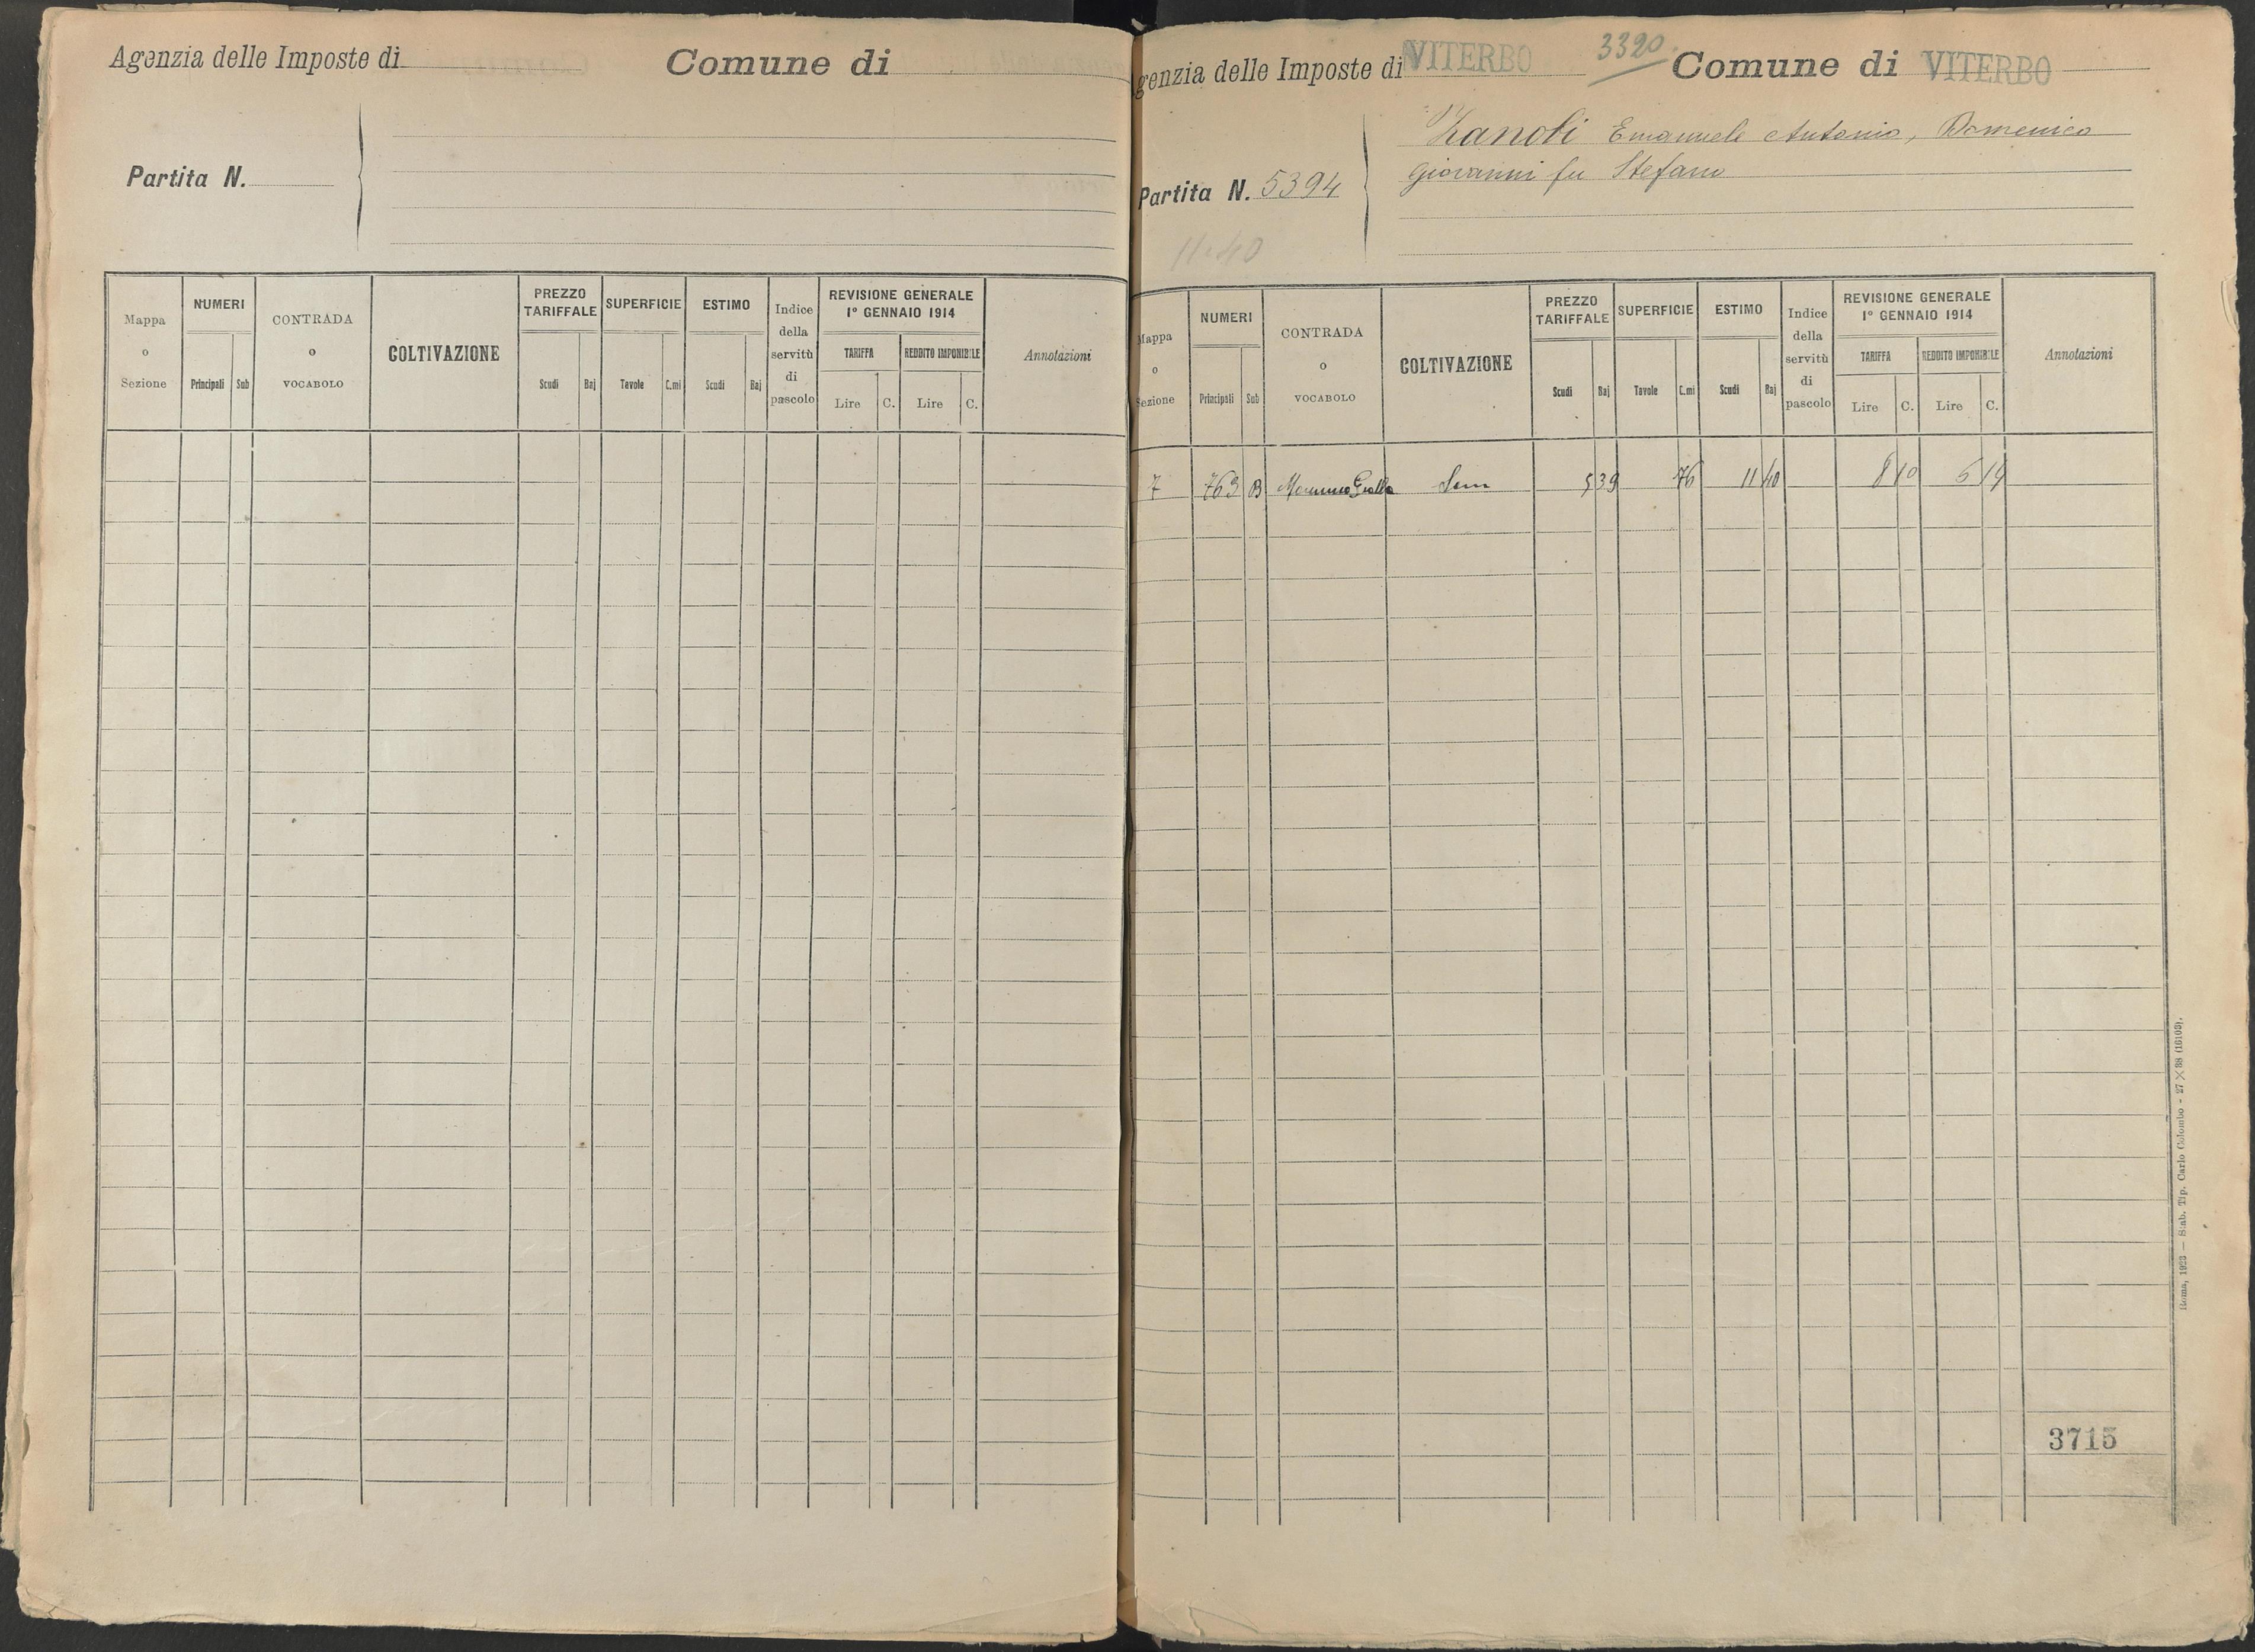 Agenzia delle Imposte di
Comune di
Partita N.
Mappa o Sezione
NUMERI
Principali
Sub
CONTRADA o VOCABOLO
COLTIVAZIONE
PREZZO TARIFFALE
Scudi
Baj
SUPERFICIE
Tavole
C.mi
ESTIMO
Scudi
Baj
Indice della servitù di pascolo
REVISIONE GENERALE
1º GENNAIO 1914
TARIFFA
Lire
C.
REDDITO IMPONIBILE
Lire
C.
Annotazioni
genzia delle Imposte di VITERBO
3320
Comune di VITERBO
Zanoli Emanuele Antonio, Domenico
Giovanni fu Stefano
Partita N. 5394
11.40
Mappa o Sezione
NUMERI
Principali
Sub
CONTRADA o VOCABOLO
COLTIVAZIONE
PREZZO TARIFFALE
Scudi
Baj
SUPERFICIE
Tavole
C.mi
ESTIMO
Scudi
Baj
Indice della servitù di pascolo
REVISIONE GENERALE
1º GENNAIO 1914
TARIFFA
Lire
C.
REDDITO IMPONIBILE
Lire
C.
Annotazioni
7 763 B Sem 5 39 76 11 40 8 10 6 19
3715
Roma, 1923 — Stab. Tip. Carlo Colombo - 27 × 38 (16103).